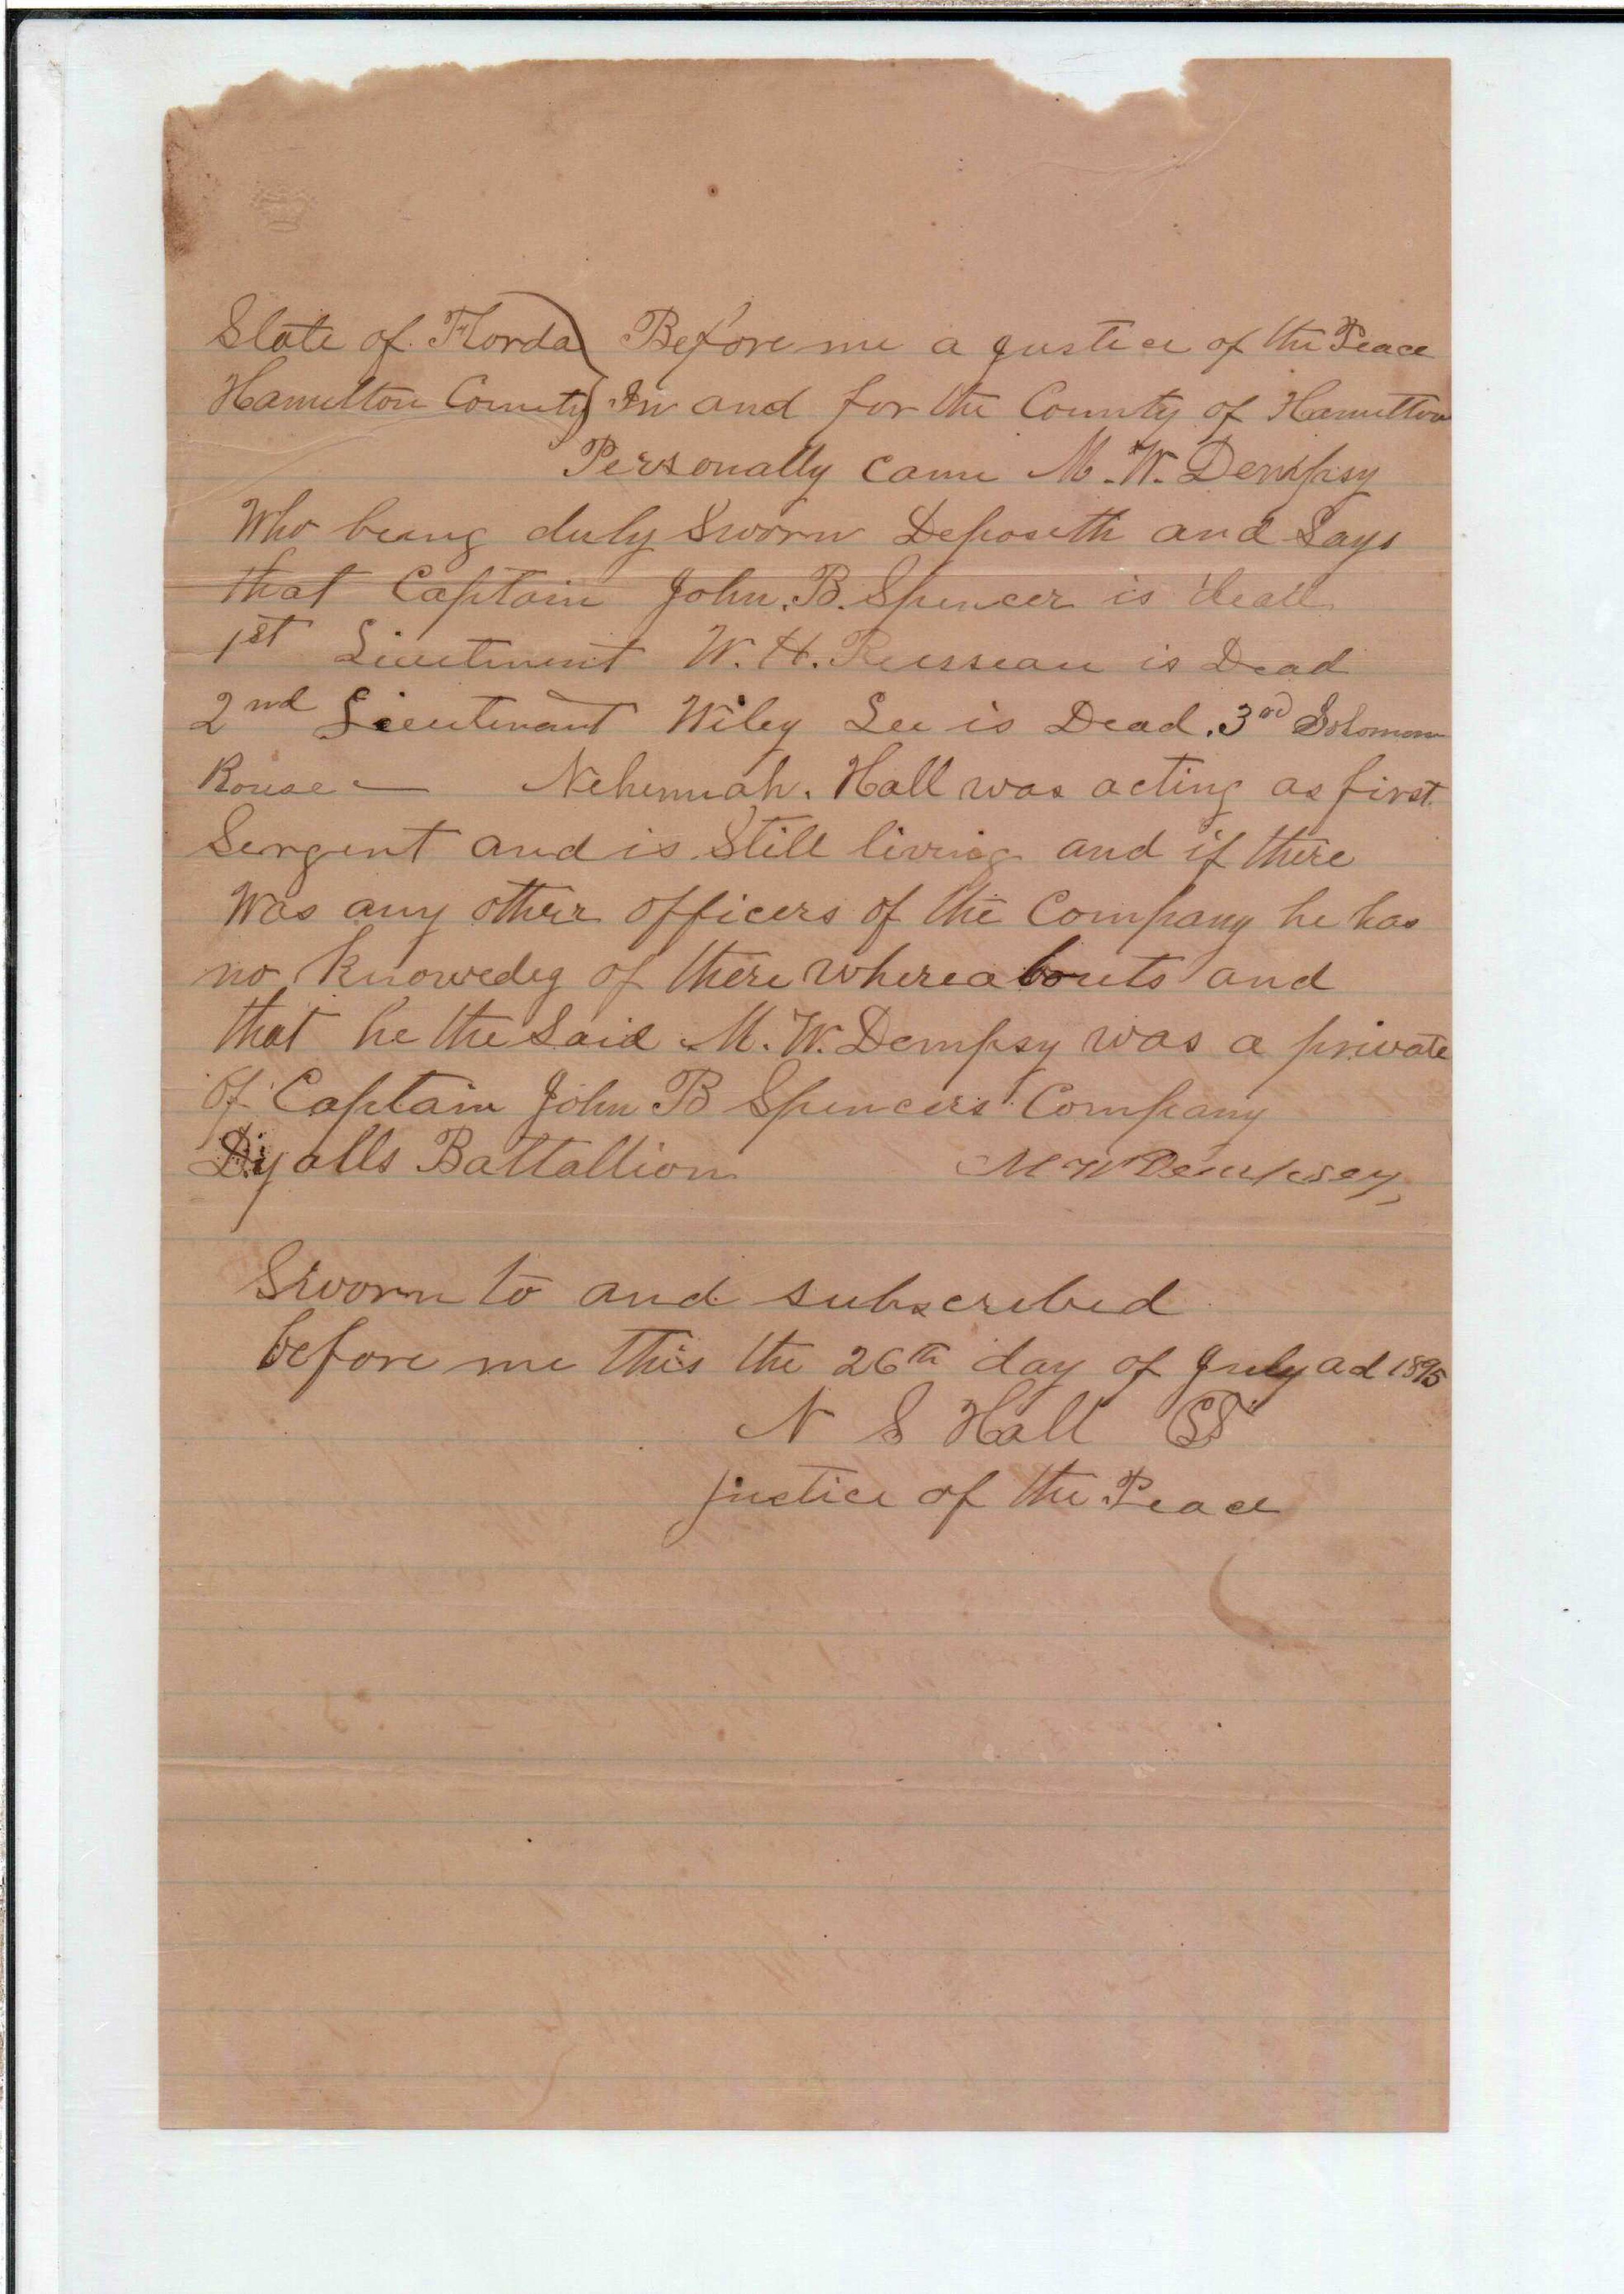 State of Florda Before me a justice of the Peace
Hamilton County In and for the County of Hamilton
Personally came M. W. Dempsy
Who being duly Sworn Deposeth and Says
that Captain John. B. Spencer is dead
1st Lieutinent W. H. Rousseau is Dead
2nd Lieutenant Wiley Lee is Dead. 3rd Solomon
Rouse — Nehemiah. Hall was acting as first
Sergent and is Still living and if there
Was any other officers of the Company he has
no knowedeg of there whereabouts and
that he the Said M. W. Dempsy was a private
of Captain John B Spencers Company
Dyalls Battallion M W Dempsey
Sworn to and subscribed
before me this the 26th day of July ad 1895
N S Hall
justice of the Peace